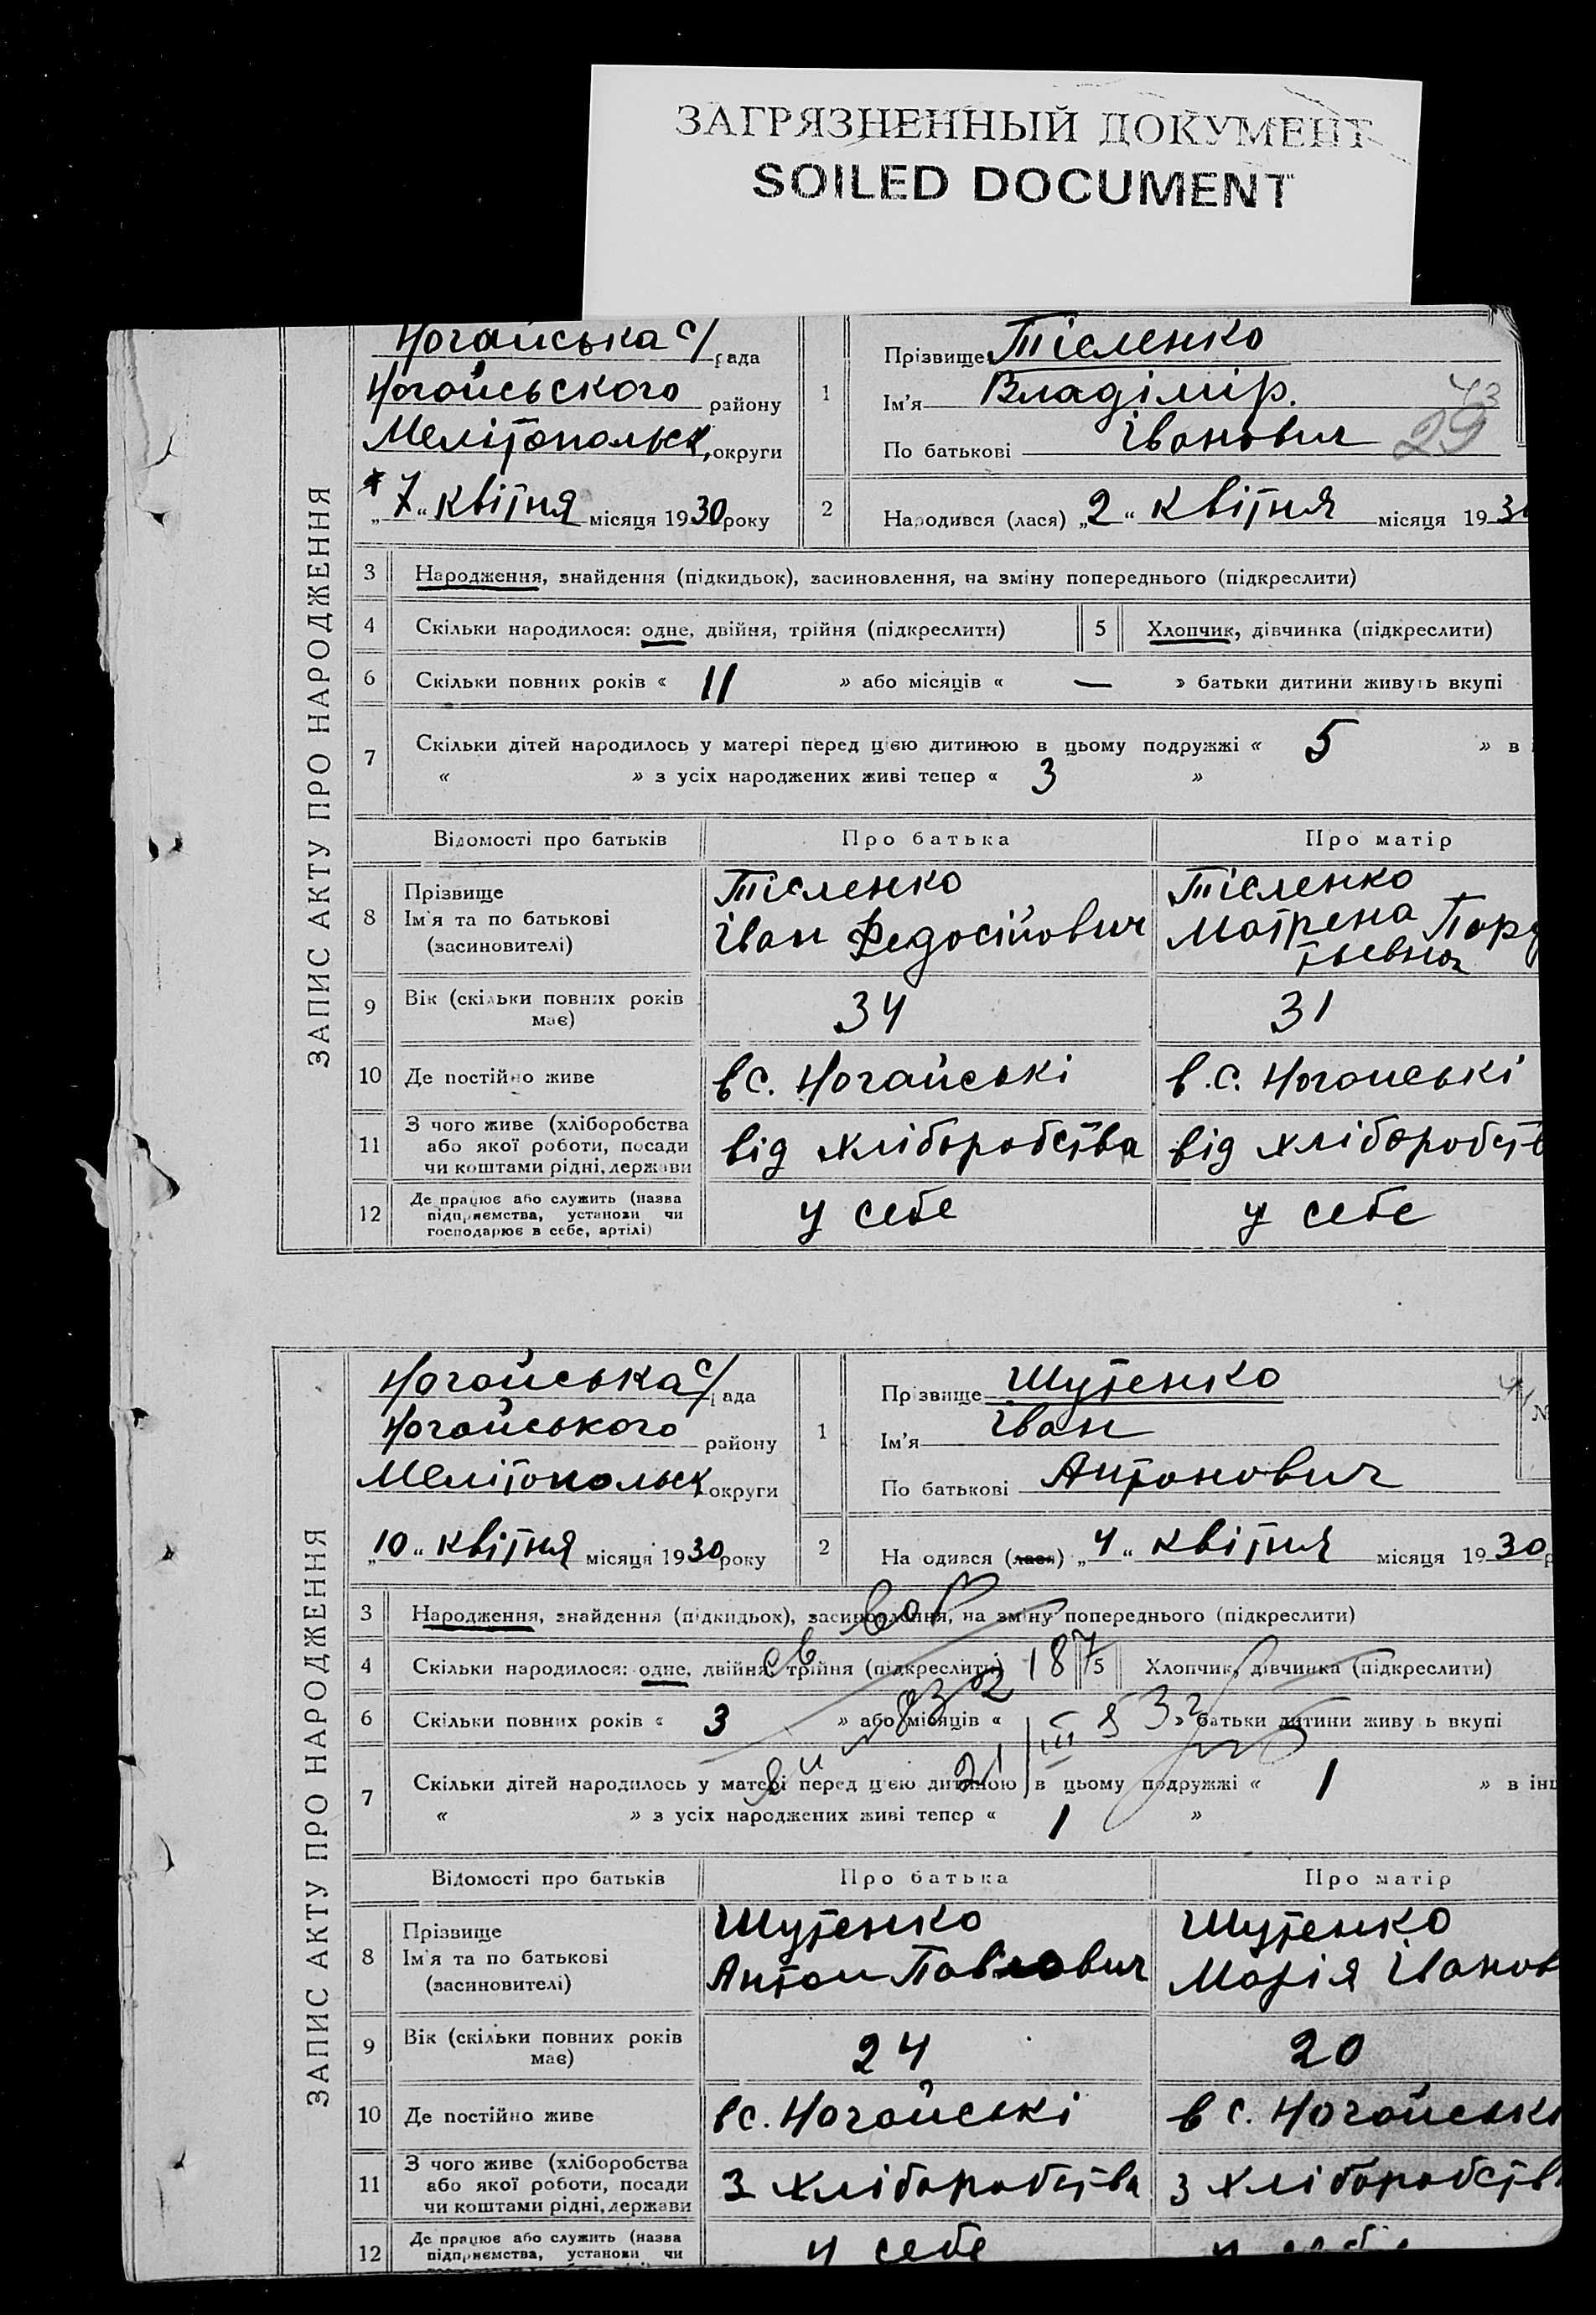 ЗАГРЯЗНЕННЫЙ ДОКУМЕНТ
SOILED DOCUMENT
ЗАПИС АКТУ ПРО НАРОДЖЕННЯ
Ногайська с/рада
Ногайського району
Мелітопольськ, округи
„7“ квітня місяця 1930 року
1
Прізвище Тісленко
Ім'я Владімір.
По батькові Іванович
43
29
2
Народився (лася) „2“ квітня місяця 193
3 Народження, знайдення (підкидьок), засиновлення, на зміну попереднього (підкреслити)
4 Скільки народилося: одне, двійня, трійня (підкреслити) 5 Хлопчик, дівчинка (підкреслити)
6 Скільки повних років « 11 » або місяців « — » батьки дитини живуть вкупі
7 Скільки дітей народилось у матері перед цією дитиною в цьому подружжі « 5 » в
« » з усіх народжених живі тепер « 3 »
Відомості про батьків Про батька Про матір
8 Прізвище
Ім'я та по батькові
(засиновителі)
Тісленко
Іван Федосійович
Тісленко
Матрена Пар
тьевна
9 Вік (скільки повних років
має)
34 31
10 Де постійно живе в с. Ногайські в.с. Ногайські
11 З чого живе (хліборобства
або якої роботи, посади
чи коштами рідні, держави
від хліборобства від хліборобств
12 Де працює або служить (назва
підприємства, установи чи
господарює в себе, артілі)
у себе у себе
ЗАПИС АКТУ ПРО НАРОДЖЕННЯ
Ногайська с/рада
Ногайського району
Мелітопольськ округи
„10“ квітня місяця 1930 року
1
Прізвище Шутенко
Ім'я Іван
По батькові Антонович
№
2
Народився (лася) „4“ квітня місяця 1930 р
3 Народження, знайдення (підкидьок), засиновлення, на зміну попереднього (підкреслити)
4 Скільки народилося: одне, двійня, трійня (підкреслити) 5 Хлопчик, дівчинка (підкреслити)
187
6 Скільки повних років « 3 » або місяців « » батьки дитини живуть вкупі
21/III 53 г
7 Скільки дітей народилось у матері перед цією дитиною в цьому подружжі « 1 » в інш
« » з усіх народжених живі тепер « 1 »
Відомості про батьків Про батька Про матір
8 Прізвище
Ім'я та по батькові
(засиновителі)
Шутенко
Антон Павлович
Шутенко
Марія Іванов
9 Вік (скільки повних років
має)
24 20
10 Де постійно живе в с. Ногайські в с. Ногайські
11 З чого живе (хліборобства
або якої роботи, посади
чи коштами рідні, держави
З хліборобства З хліборобств
12 Де працює або служить (назва
підприємства, установи чи
у себе